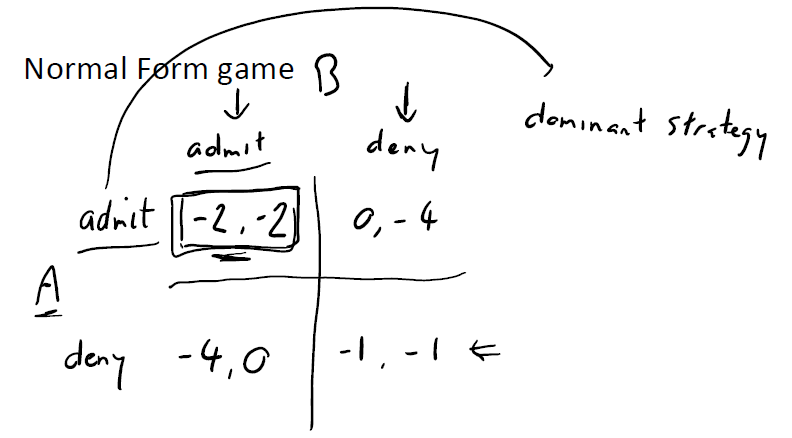 Normal Form game B
dominant strategy
admit deny
admit -2, -2 0, -4
A
deny -4, 0 -1, -1